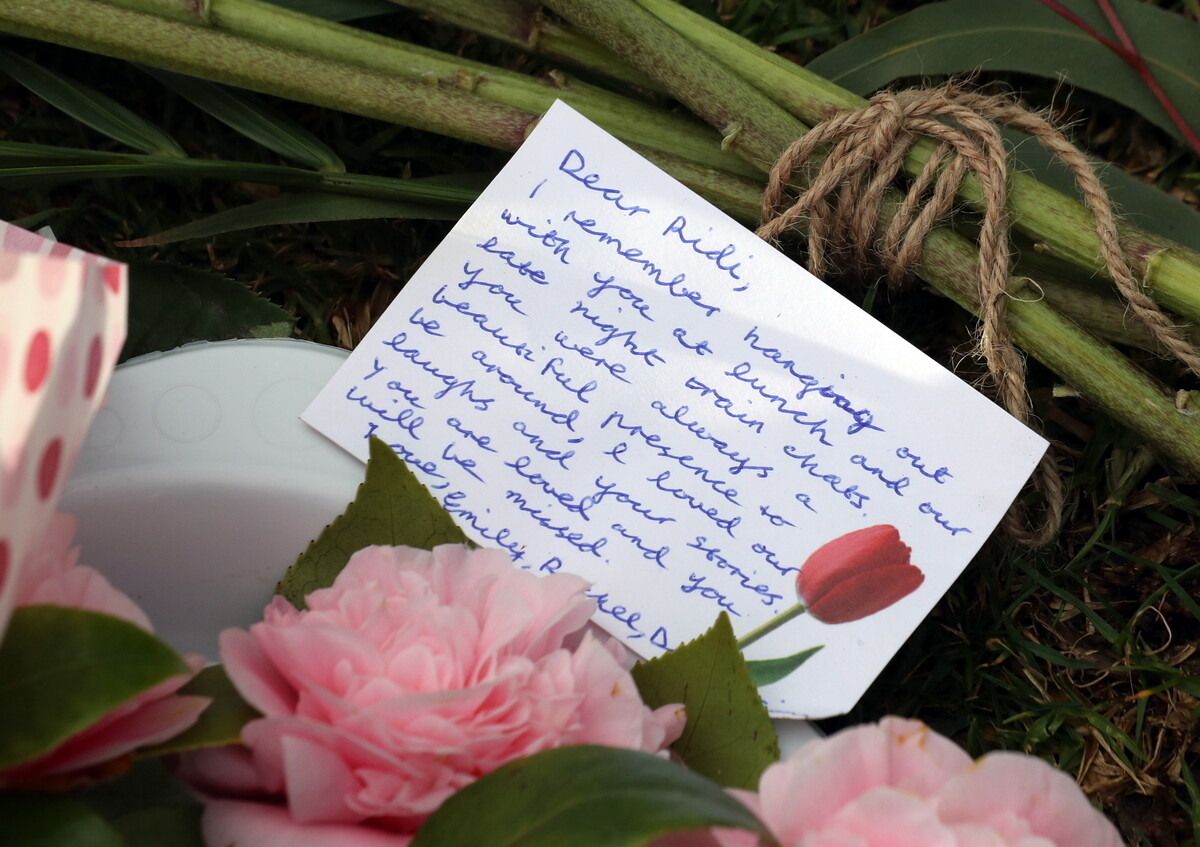 Dear Ridi,
I remember hanging out
with you at lunch and our
late night train chats.
You were always a
beautiful presence to
be around, I loved our
laughs and your stories.
You are loved and you
will be missed.
Love, Emily,